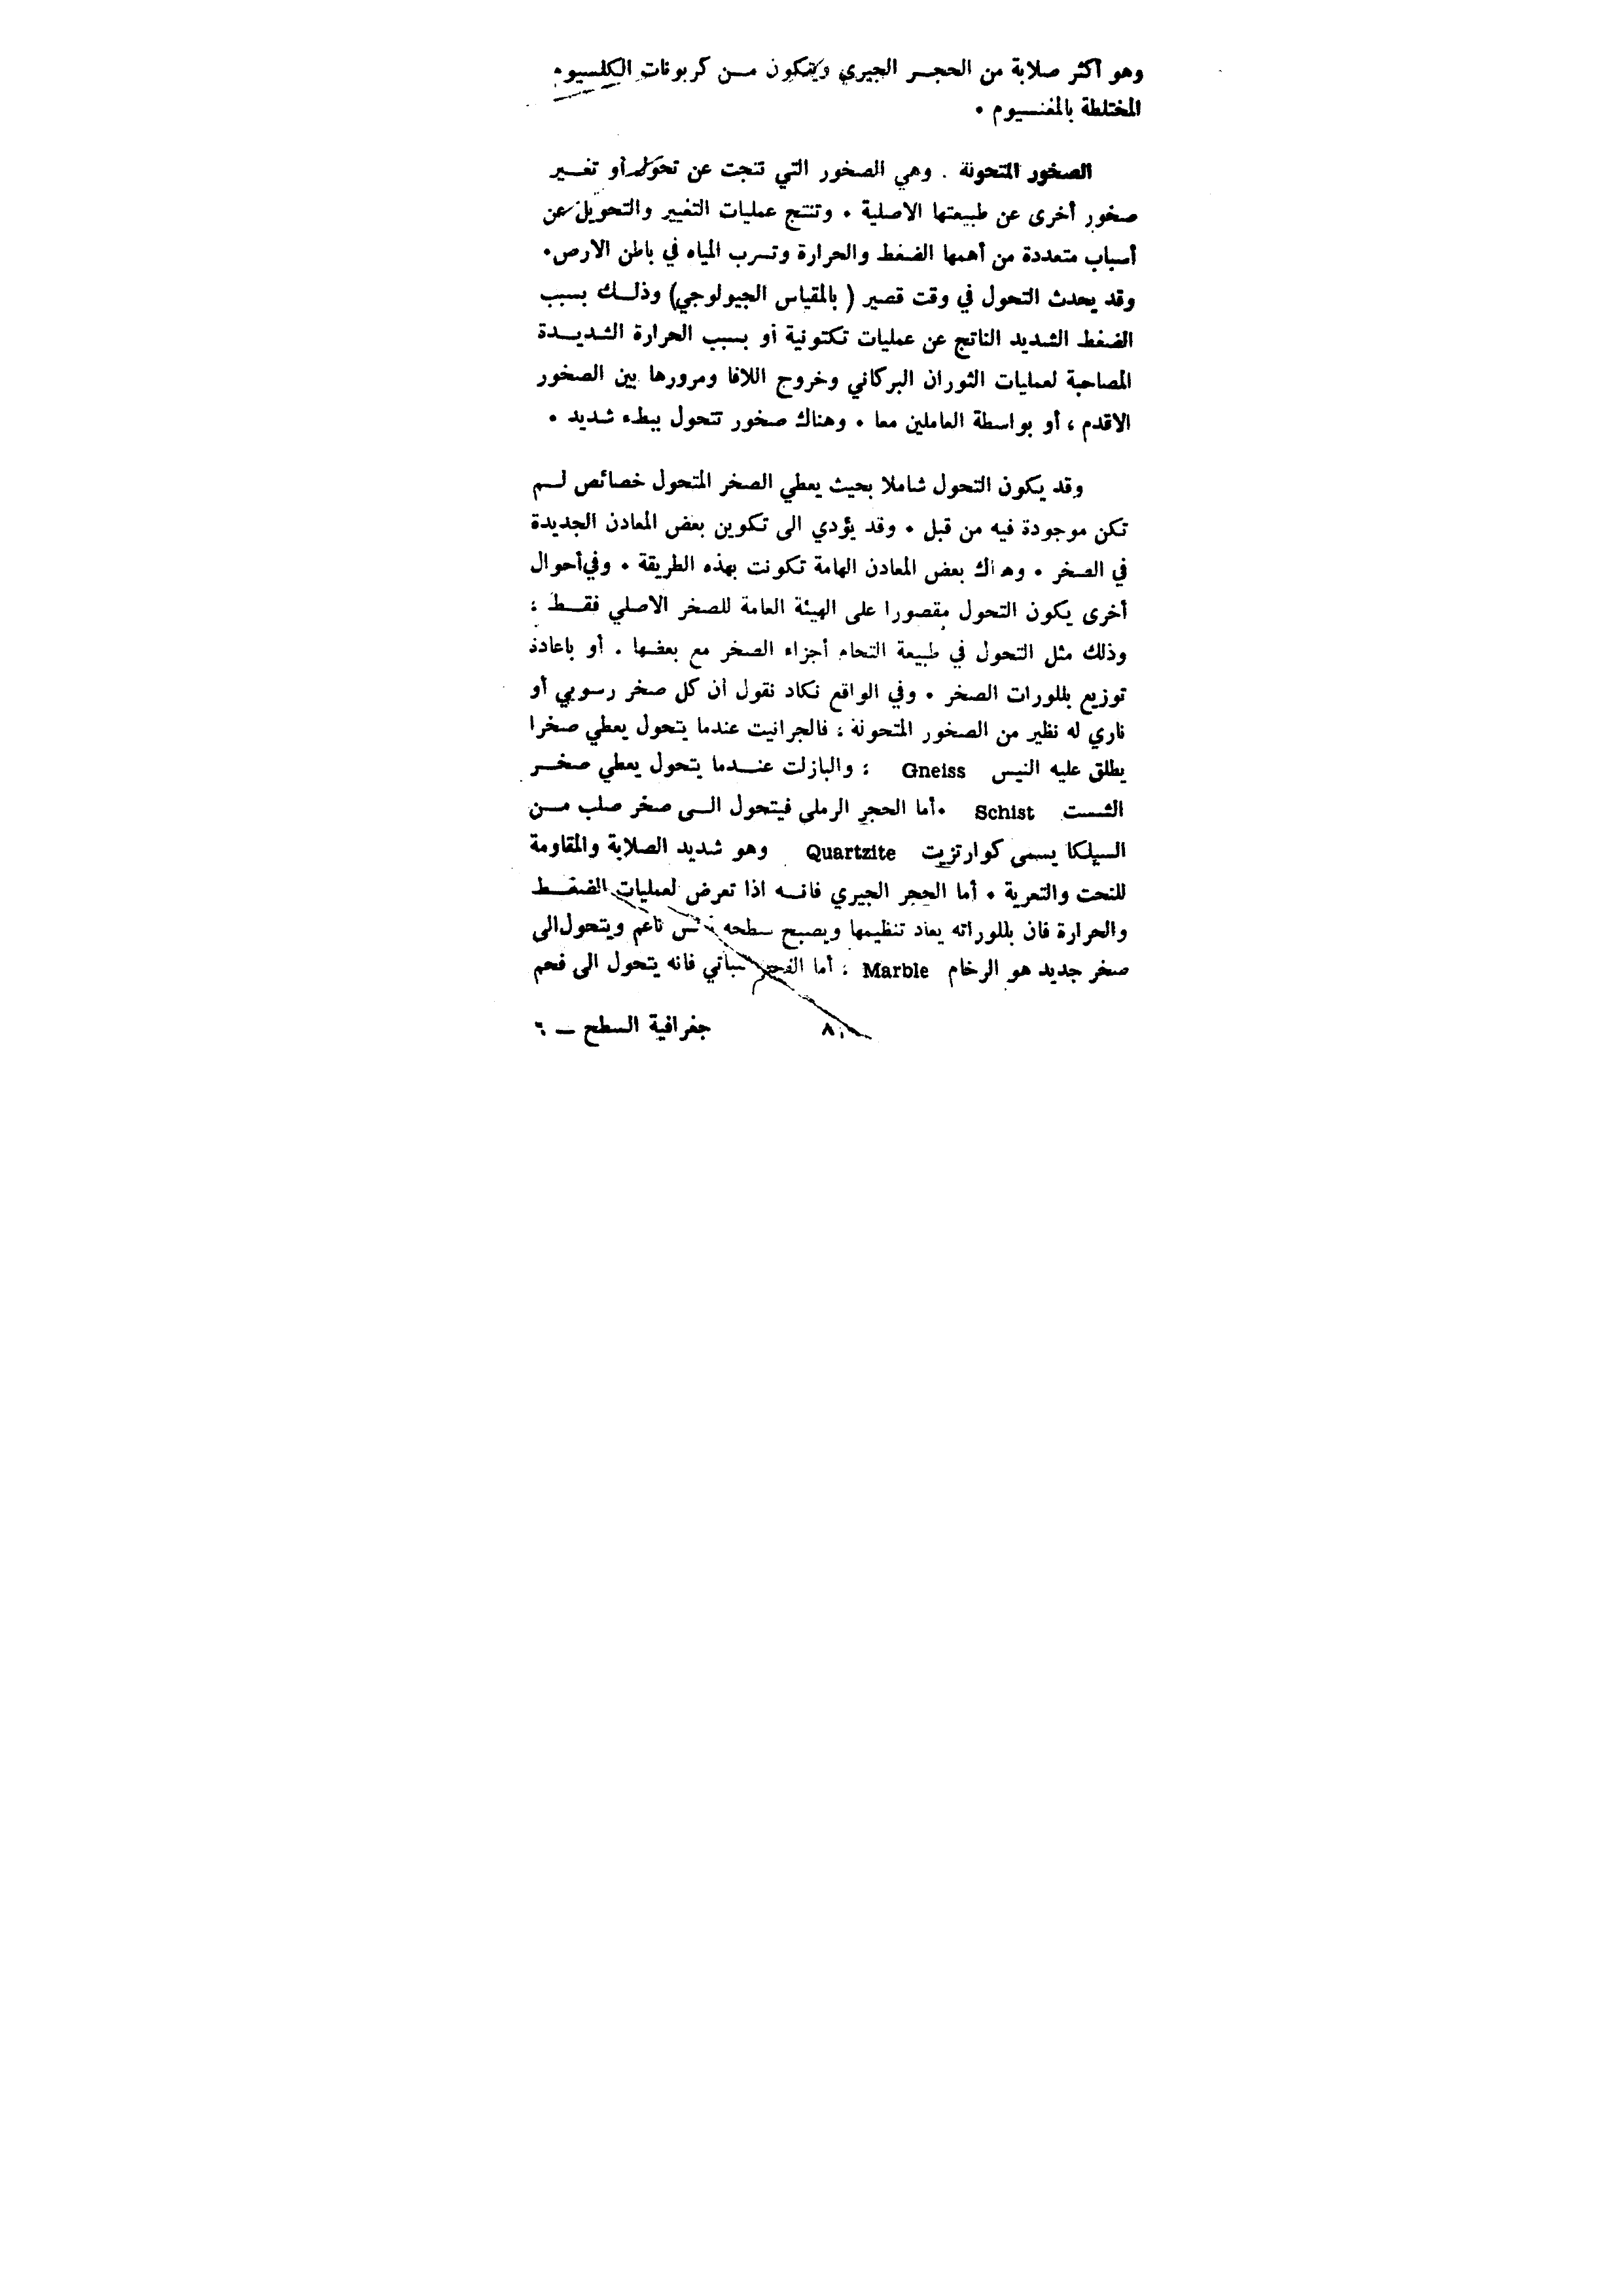 وهو أكثر صلابة من الحجر الجيري ويتكون من كربونات الكلسيوم
المختلطة بالمغنسيوم •
الصخور المتحولة . وهي الصخور التي تنجت عن تحول أو تغيير
صخور أخرى عن طبيعتها الاصلية • وتنتج عمليات التغيير والتحويل عن
أسباب متعددة من أهمها الضغط والحرارة وتسرب المياه في باطن الارض •
وقد يحدث التحول في وقت قصير ( بالمقياس الجيولوجي) وذلك بسبب
الضغط الشديد الناتج عن عمليات تكتونية أو بسبب الحرارة الشديدة
المصاحبة لعمليات الثوران البركاني وخروج اللافا ومرورها بين الصخور
الاقدم ، أو بواسطة العاملين معا • وهناك صخور تتحول ببطء شديد •
وقد يكون التحول شاملا بحيث يعطي الصخر المتحول خصائص لم
تكن موجودة فيه من قبل • وقد يؤدي الى تكوين بعض المعادن الجديدة
في الصخر • وهناك بعض المعادن الهامة تكونت بهذه الطريقة • وفي أحوال
أخرى يكون التحول مقصورا على الهيئة العامة للصخر الاصلي فقط ؛
وذلك مثل التحول في طبيعة التحام أجزاء الصخر مع بعضها . أو باعادة
توزيع بللورات الصخر • وفي الواقع نكاد نقول أن كل صخر رسوبي أو
ناري له نظير من الصخور المتحولة ؛ فالجرانيت عندما يتحول يعطي صخرا
يطلق عليه النيس Gneiss ؛ والبازلت عندما يتحول يعطي صخر
الشست Schist •أما الحجر الرملي فيتحول الى صخر صلب من
السيلكا يسمى كوارتزيت Quartzite وهو شديد الصلابة والمقاومة
للنحت والتعرية • أما الحجر الجيري فانه اذا تعرض لعمليات الضغط
والحرارة فان بللوراته يعاد تنظيمها ويصبح سطحه ناعم ويتحول الى
صخر جديد هو الرخام Marble ؛ أما الفحم النباتي فانه يتحول الى فحم
جغرافية السطح – ٦